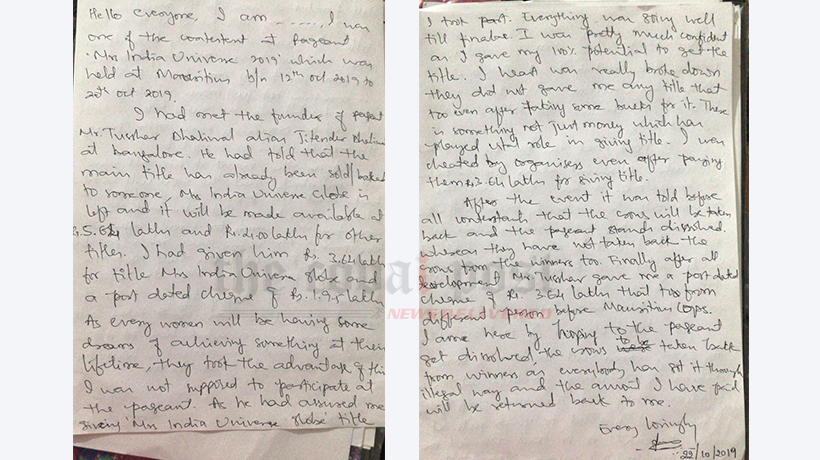 Hello everyone, I am ------, I was
one of the contentent at pageant
'Mrs India Universe 2019' which was
held at Mauritius b/n 12th oct 2019 to
20th oct 2019.
I had met the funder of pageant
Mr. Tusshar Dhaliwal alias Jitender Dhaliwal
at bangalore. He had told that the
main title has already been sold/
to someone, Mrs India Universe Globe is
left and it will be made available at
Rs. 5.64 lakhs and Rs. 2.00 lakhs for other
titles. I had given him Rs. 3.64 lakhs
for title Mrs India Universe Globe and
a post dated cheque of Rs. 1.95 lakhs
As every women will be having some
dreams of achieving something at their
lifetime, they took the advantage of this
I was not supposed to participate at
the pageant. As he had assured me
giving 'Mrs India Universe Globe' title
I took part. Everything was going well
till finale. I was pretty much confident
as I gave my 100% potential to get the
title. I heart was really broke down
they did not gave me any title that
too even after taking some bucks for it. There
is something not just money which has
played vital role in giving title. I was
cheated by organisers even after paying
them Rs 3.64 lakhs for giving title.
After the event it was told before
all contestants that the crown will be taken
back and the pageant stands dissolved.
whereas they have not taken back the
crown from the winners too. Finally after all
developement Mr. Tusshar gave me a post dated
cheque of Rs. 3.64 lakhs that too from
different person before Mauritius Cops.
I came here by hoping to the pageant
get dissolved the crowns taken back
from winners as everybody has got it through
illegal way and the amount I have paid
will be returned back to me.
Every lovingly
22/10/2019
the tobai post
NEWS DELIVERED